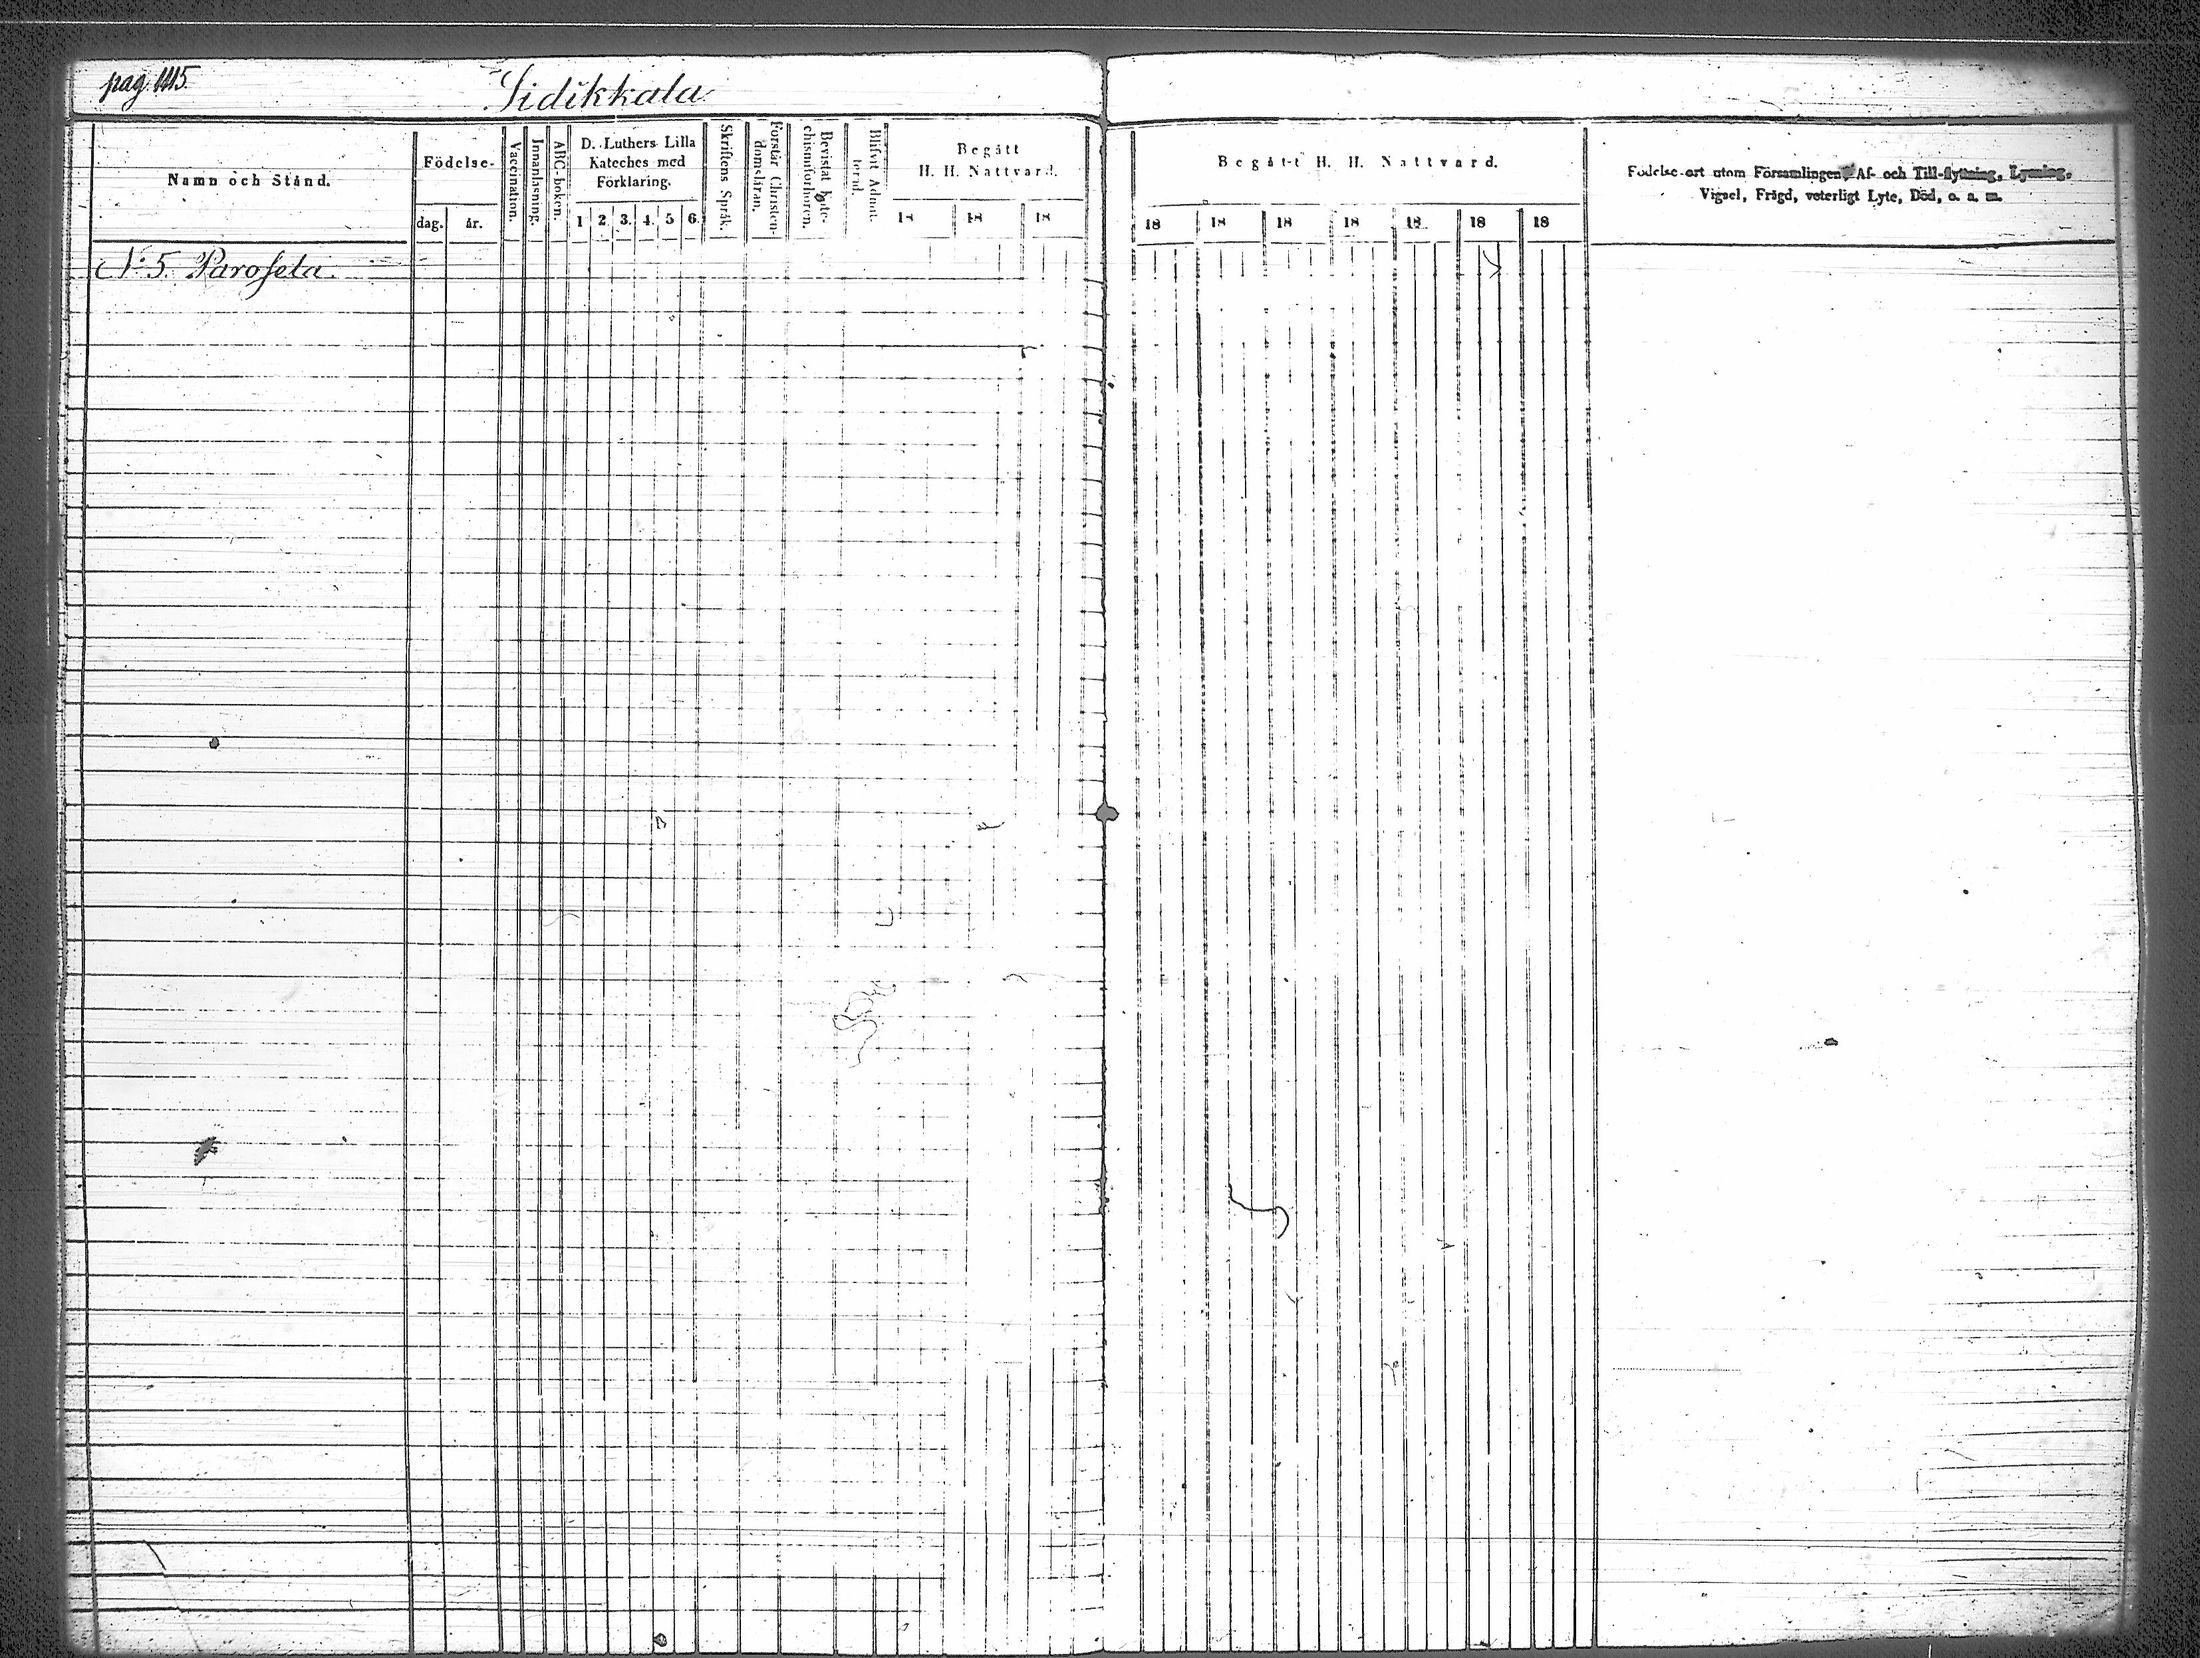 pag. 1115.
Sidikkala
Namn och Stånd.
Födelse-
dag.
år.
Vaccination.
Innanläsning.
ABC-boken.
D. Luthers Lilla
Kateches med
Förklaring.
1 2 3. 4. 5 6.
Skriftens Språk.
Förstår Christen-
domsläran.
Bevistat Kate-
chismiförhören.
Blifvit Admit-
terad.
Begått
H. H. Nattvard.
18 18 18
Begått H. H. Nattvard.
18 18 18 18 18 18 18
Födelse-ort utom Församlingen, Af- och Till-flyttning, Lysning,
Vigsel, Frägd, veterligt Lyte, Död, o. s. m.
N:o 5. Paroseta.